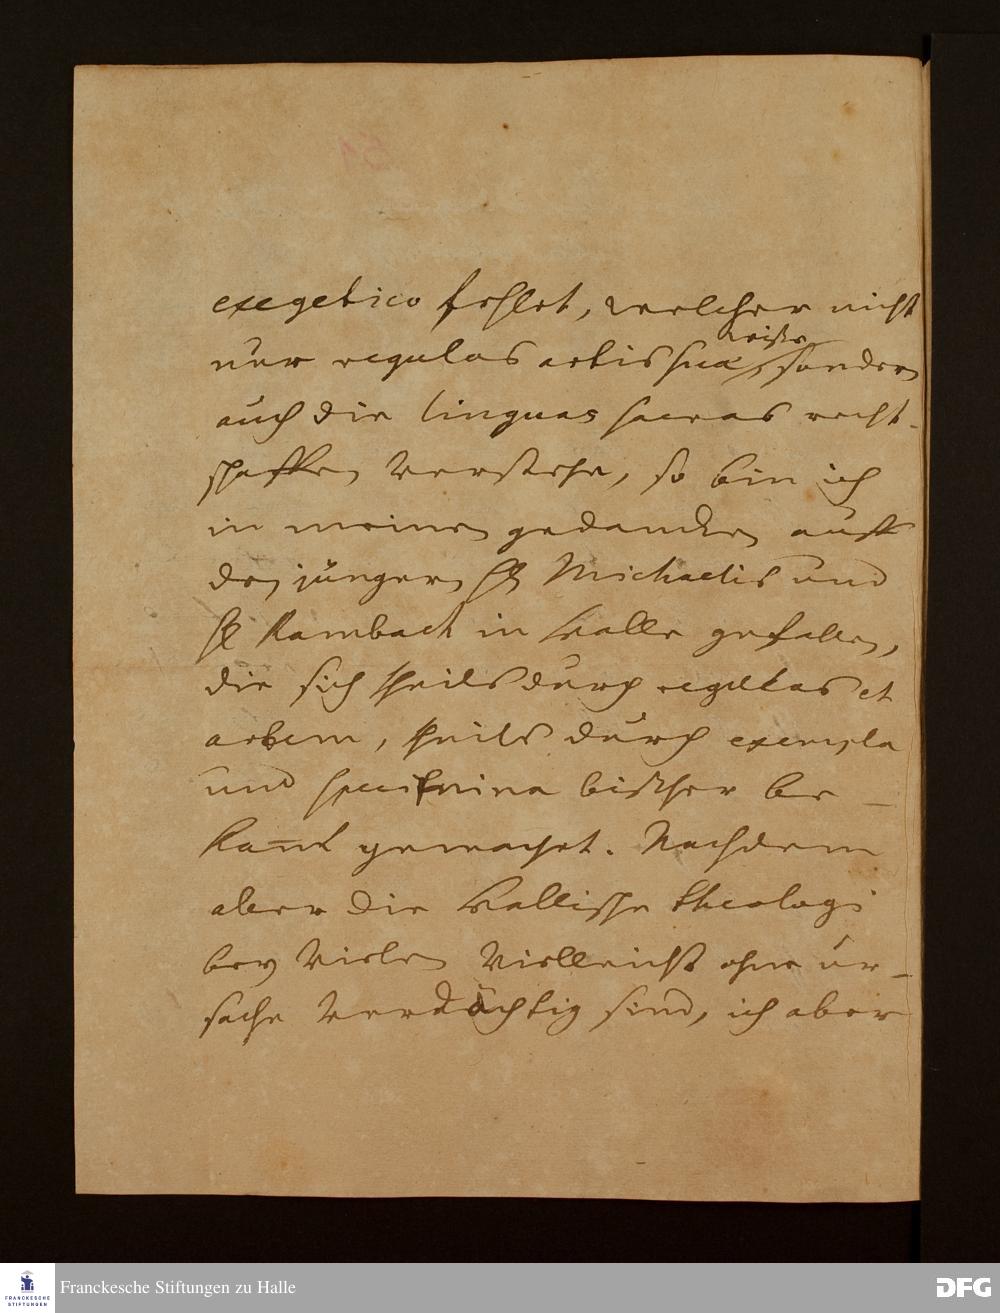 exegetico fehlet, welcher nicht
nur regulas artis suae wiße, sondern
auch die linguas sacras recht-
schaffen verstehe, so bin ich
in meinen gedancken auff
den jüngern H. Michaelis und
H. Rambach in Halle gefallen,
die sich theils durch regulas et
artem, theils durch exempla
und specimina bißher be-
kant gemacht. Nachdem
aber die Hallische theologi
bey vielen vielleicht ohne ur-
sache verdächtig sind, ich aber
FRANCKESCHE
STIFTUNGEN
Franckesche Stiftungen zu Halle
DFG